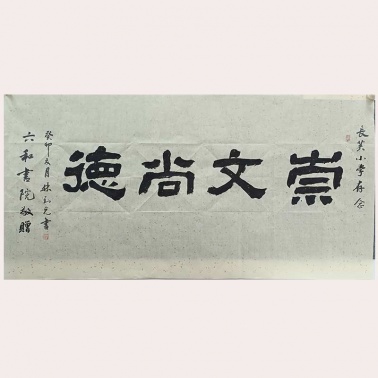 長英小学存念
崇文尚德
癸卯友月林玉元書
六和書院敬贈